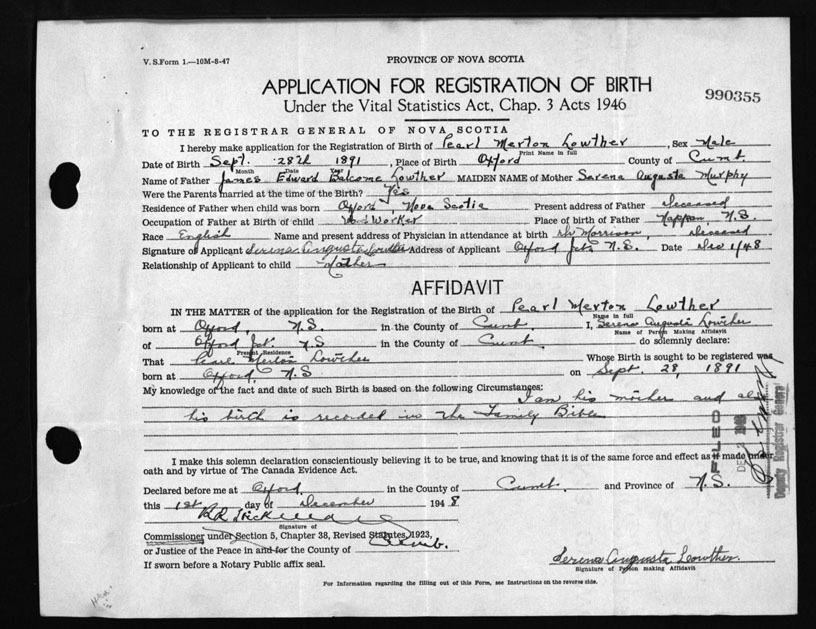 V. S. Form 1.—10M-8-47
PROVINCE OF NOVA SCOTIA
APPLICATION FOR REGISTRATION OF BIRTH
990355
Under the Vital Statistics Act, Chap. 3 Acts 1946
TO THE REGISTRAR GENERAL OF NOVA SCOTIA
I hereby make application for the Registration of Birth of Pearl Merton Lowther, Sex Male
Print Name in full
Date of Birth Sept. 28th 1891, Place of Birth Oxford County of Cumb.
Month Date Year
Name of Father James Edward Balcome Lowther MAIDEN NAME of Mother Serena Augusta Murphy
Were the Parents married at the time of the Birth? Yes
Residence of Father when child was born Oxford Nova Scotia Present address of Father Deceased
Occupation of Father at Birth of child Wood Worker Place of birth of Father Nappan N.S.
Race English Name and present address of Physician in attendance at birth Dr Morrison, Deceased
Signature of Applicant Serena Augusta Lowther Address of Applicant Oxford Jct. N.S. Date Dec 1/48
Relationship of Applicant to child Mother
AFFIDAVIT
IN THE MATTER of the application for the Registration of the Birth of Pearl Merton Lowther
Name in full
born at Oxford, N.S. in the County of Cumb. I, Serena Augusta Lowther
Name of Person Making Affidavit
of Oxford Jct. N.S in the County of Cumb. do solemnly declare:
Present Residence
That Pearl Merton Lowther Whose Birth is sought to be registered was
born at Oxford, N.S on Sept. 28, 1891
My knowledge of the fact and date of such Birth is based on the following Circumstances:
I am his mother and also
his birth is recorded in the Family Bible
I make this solemn declaration conscientiously believing it to be true, and knowing it is of the same force and effect as if made under
oath and by virtue of The Canada Evidence Act.
Declared before me at Oxford. in the County of Cumb. and Province of N.S.
this 1st day of December 1948
Signature of
Commissioner under Section 5, Chapter 38, Revised Statutes, 1923,
or Justice of the Peace in and for the County of Cumb.
If sworn before a Notary Public affix seal.
Serena Augusta Lowther.
Signature of Person making Affidavit
For Information regarding the filling out of this Form, see Instructions on the reverse side.
FILED
Deputy Registrar General